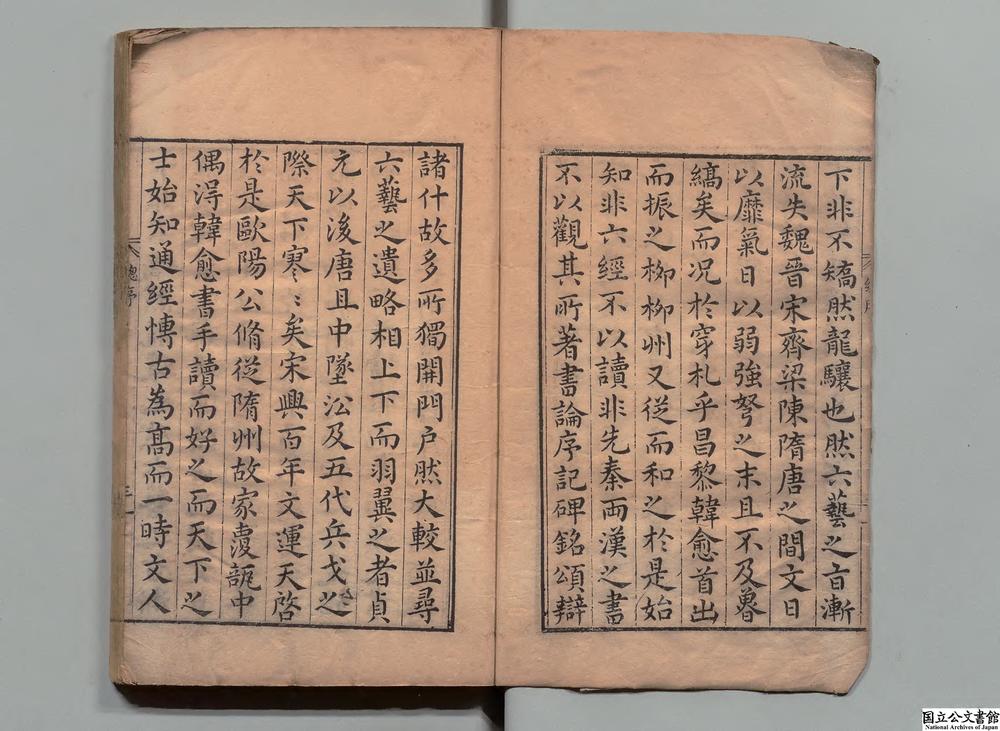 下非不矯然龍驤也然六藝之旨漸
流失魏晉宋齊梁陳隋唐之間文日
以靡氣日以弱強弩之末且不及魯
縞矣而況於穿札乎昌黎韓愈首出
而振之柳柳州又從而和之於是始
知非六經不以讀非先秦兩漢之書
不以觀其所著書論序記碑銘頌辯
諸什故多所獨開門戶然大較並尋
六藝之遺略相上下而羽翼之者貞
元以後唐且中墜沿及五代兵戈之
際天下寥〻矣宋興百年文運天啓
於是歐陽公脩從隋州故家覆瓿中
偶得韓愈書手讀而好之而天下之
士始知通經博古為高而一時文人
總序
国立公文書館
National Archives of Japan